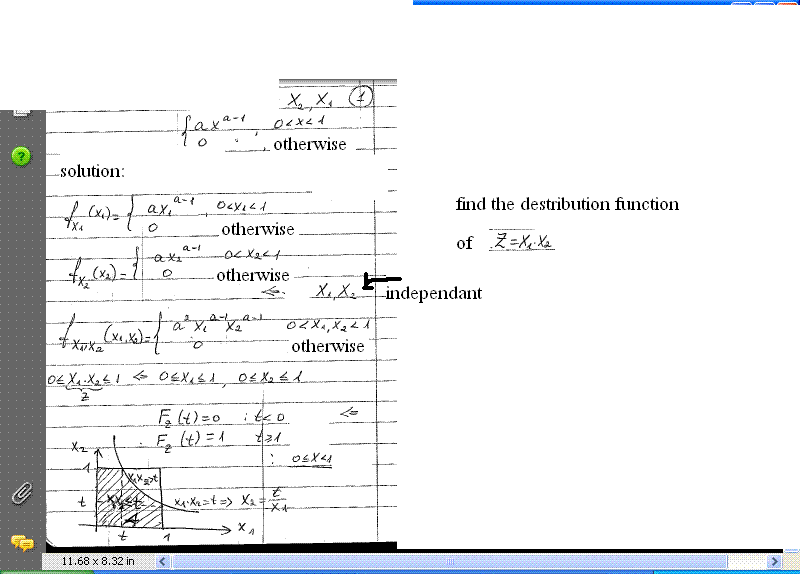 X₂, X₁ ①
{ a x^(a-1) , 0<x<1
0 , otherwise
solution:
f_X₁(x₁) = { a x₁^(a-1) , 0<x₁<1
0 otherwise
f_X₂(x₂) = { a x₂^(a-1) 0<x₂<1
0 otherwise
⇐ X₁, X₂ independant
f_X₁,X₂(x₁,x₂) = { a² x₁^(a-1) x₂^(a-1) 0<x₁,x₂<1
0 otherwise
0≤X₁·X₂≤1 ⇐ 0≤X₁≤1 , 0≤X₂≤1
Z
F_Z(t)=0 : t<0 ⇐
F_Z(t)=1 t≥1
: 0≤X<1
X₂
1
X₁X₂>t
t
X₁·X₂=t ⇒ X₂ = t/X₁
t 1 X₁
find the destribution function
of Z=X₁·X₂
11.68 x 8.32 in